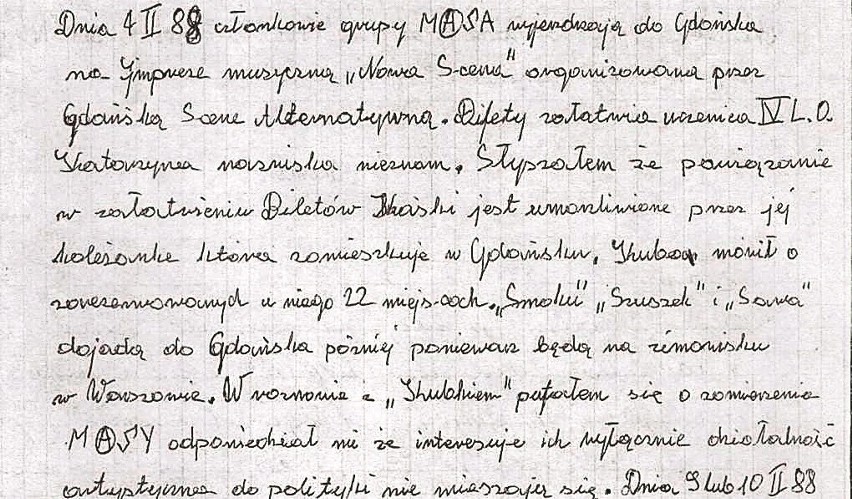 Dnia 4 II 88 członkowie grupy MⒶSA wyjerdzają do Gdańska
na Ympreze muzyczną „Nowa Scena" organizowaną przez
Gdańską Scene Alternatywną. Bilety załatwia uczenica IV L.O.
Katarzyna nazwiska nieznam. Słyszałem że powiązanie
w załatwieniu Biletów Kaśki jest umorzliwione przez jej
koleżanke która zamieszkuje w Gdańsku. Kuba mówił o
zarezerwowanych u niego 22 miejscach. „Smoku" „Szuszek" i „Sowa"
dojadą do Gdańska później poniewarz będą na zimowisku
w Warszawie. W rozmowie z „Kubkiem" pytałem się o zamierzenia
MⒶSY odpowiedział mi że interesuje ich wyłącznie działalność
artystyczna do polityki nie mieszają się. Dnia 9 lub 10 II 88